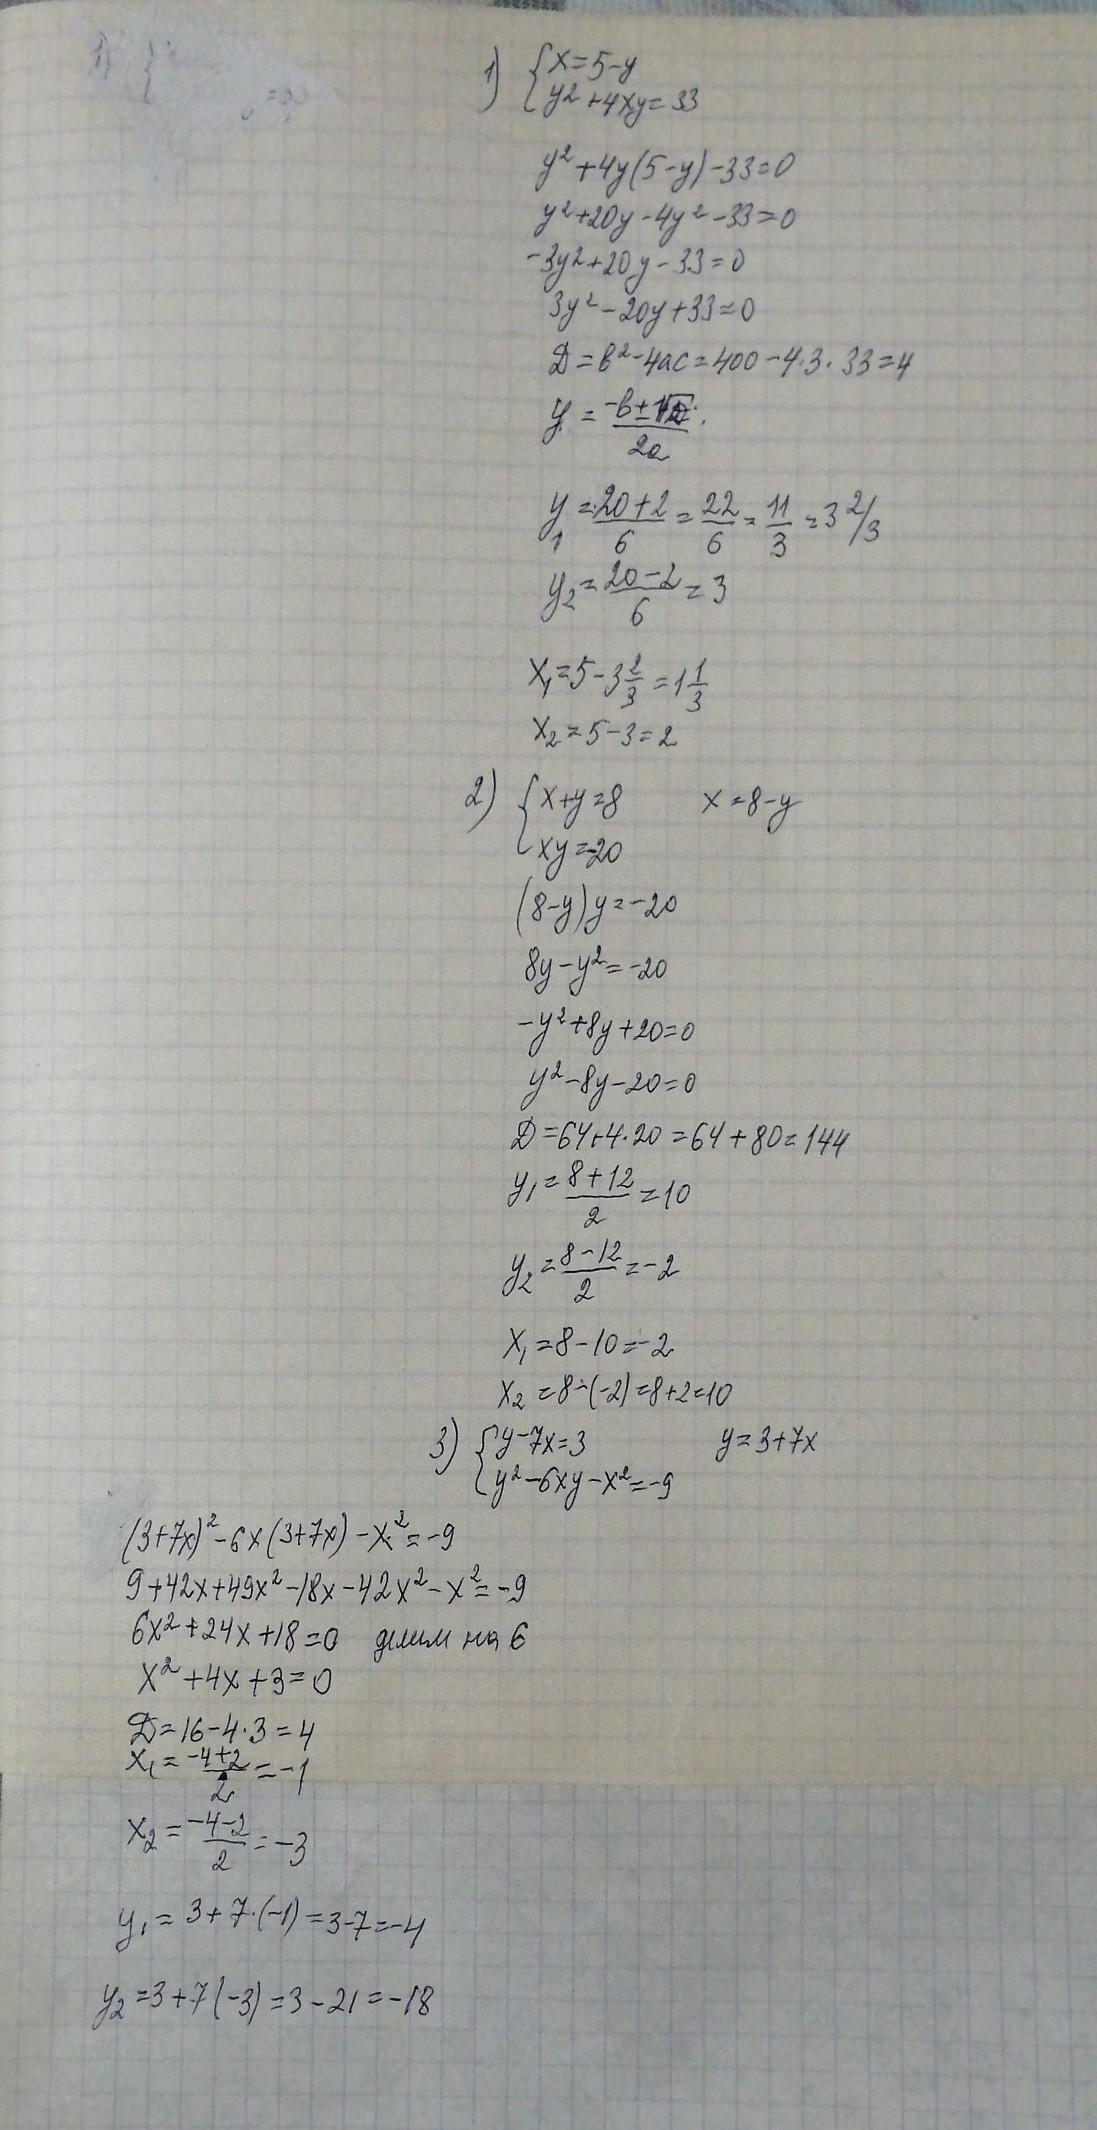 1) { x=5-y
y²+4xy=33
y²+4y(5-y)-33=0
y²+20y-4y²-33=0
-3y²+20y-33=0
3y²-20y+33=0
D=b²-4ac=400-4·3·33=4
y=(-b±√D)/2a
y₁=(20+2)/6=22/6=11/3=3 2/3
y₂=(20-2)/6=3
x₁=5-3 2/3=1 1/3
x₂=5-3=2
2) { x+y=8 x=8-y
xy=-20
(8-y)y=-20
8y-y²=-20
-y²+8y+20=0
y²-8y-20=0
D=64+4·20=64+80=144
y₁=(8+12)/2=10
y₂=(8-12)/2=-2
x₁=8-10=-2
x₂=8-(-2)=8+2=10
3) { y-7x=3 y=3+7x
y²-6xy-x²=-9
(3+7x)²-6x(3+7x)-x²=-9
9+42x+49x²-18x-42x²-x²=-9
6x²+24x+18=0 делим на 6
x²+4x+3=0
D=16-4·3=4
x₁=(-4+2)/2=-1
x₂=(-4-2)/2=-3
y₁=3+7·(-1)=3-7=-4
y₂=3+7(-3)=3-21=-18